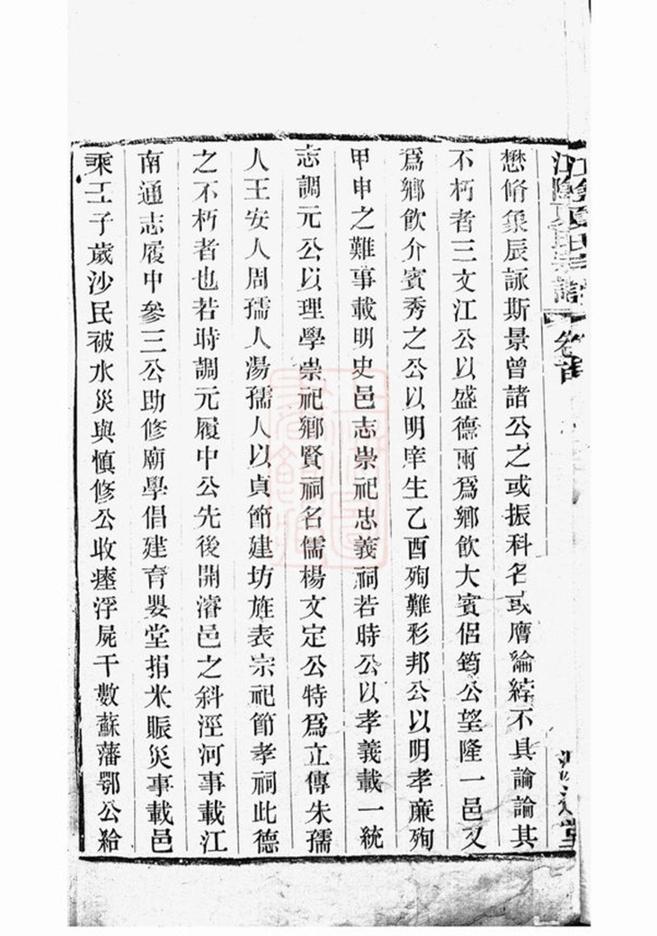 江陰夏氏宗譜 卷首
懋脩象辰詠斯景曾諸公之或振科名或膺綸綍不具論論其
不朽者三文江公以盛德兩爲鄉飲大賓侶筠公望隆一邑又
爲鄉飲介賓秀之公以明庠生乙酉殉難彩邦公以明孝廉殉
甲申之難事載明史邑志崇祀忠義祠若時公以孝義載一統
志調元公以理學崇祀鄉賢祠名儒楊文定公特爲立傳朱孺
人王安人周孺人湯孺人以貞節建坊旌表宗祀節孝祠此德
之不朽者也若時調元履中公先後開濬邑之斜涇河事載江
南通志履中參三公助修廟學倡建育嬰堂捐米賑災事載邑
乘壬子歲沙民被水災與愼修公收瘞浮屍千數蘇藩鄂公給